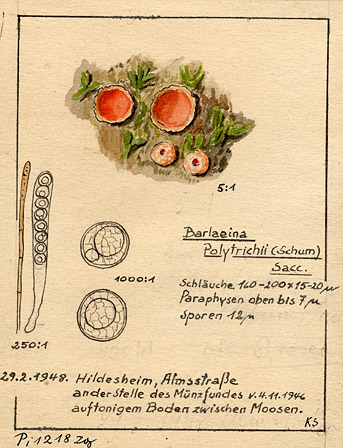 5:1
Barlaeina
Polytrichii (Schum)
Sacc.
1000:1
Schläuche 160-200 x 15-20 µ
Paraphysen oben bis 7 µ
Sporen 12 µ
250:1
29.2.1948. Hildesheim, Almsstraße
an der Stelle des Münzfundes v. 4.11.1946
auf tonigem Boden zwischen Moosen.
KS
Pi 1218 Zg